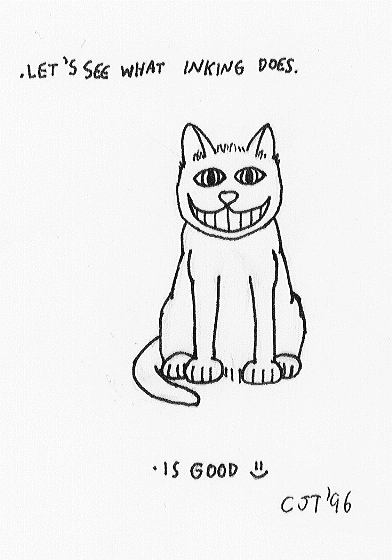 .LET'S SEE WHAT INKING DOES.
·IS GOOD
CJT '96